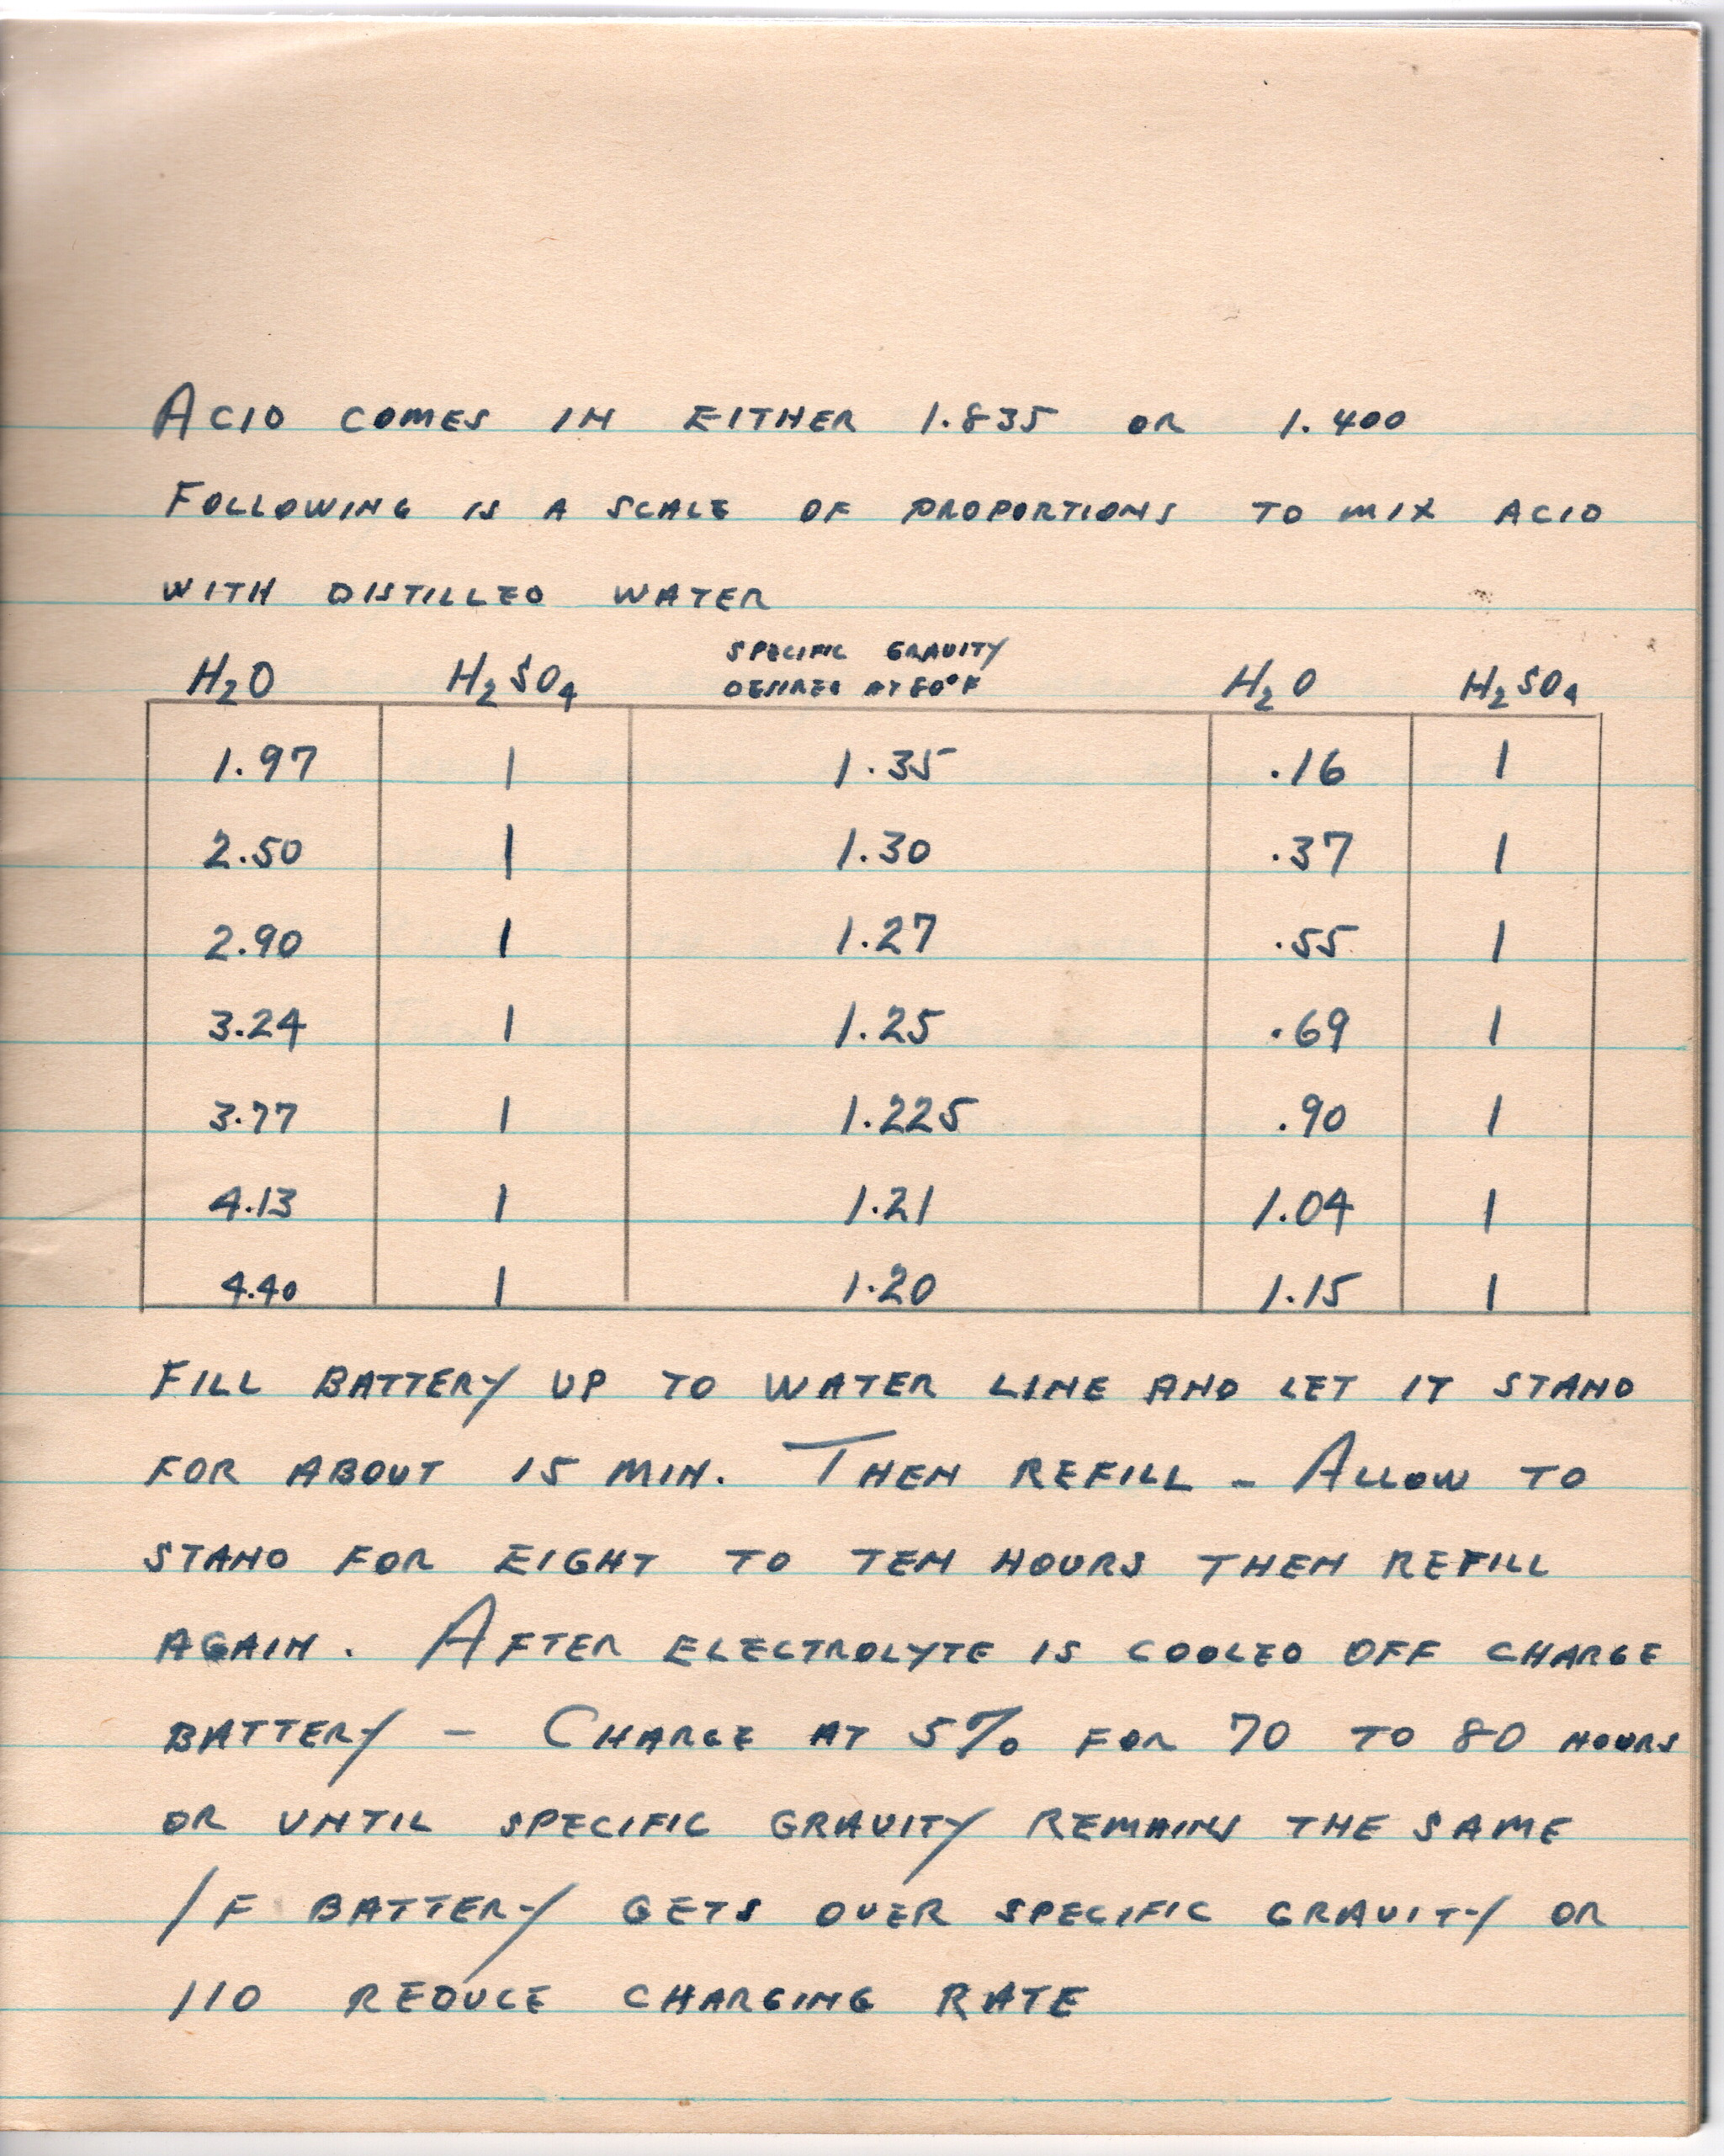 ACID COMES IN EITHER 1.835 OR 1.400
FOLLOWING IS A SCALE OF PROPORTIONS TO MIX ACID
WITH DISTILLED WATER
H2O H2SO4 SPECIFIC GRAVITY H2O H2SO4
DESIRED AT 80°F
1.97 1 1.35 .16 1
2.50 1 1.30 .37 1
2.90 1 1.27 .55 1
3.24 1 1.25 .69 1
3.77 1 1.225 .90 1
4.13 1 1.21 1.04 1
4.40 1 1.20 1.15 1
FILL BATTERY UP TO WATER LINE AND LET IT STAND
FOR ABOUT 15 MIN. THEN REFILL - ALLOW TO
STAND FOR EIGHT TO TEN HOURS THEN REFILL
AGAIN. AFTER ELECTROLYTE IS COOLED OFF CHARGE
BATTERY - CHARGE AT 5% FOR 70 TO 80 HOURS
OR UNTIL SPECIFIC GRAVITY REMAINS THE SAME
IF BATTERY GETS OVER SPECIFIC GRAVITY OR
110 REDUCE CHARGING RATE